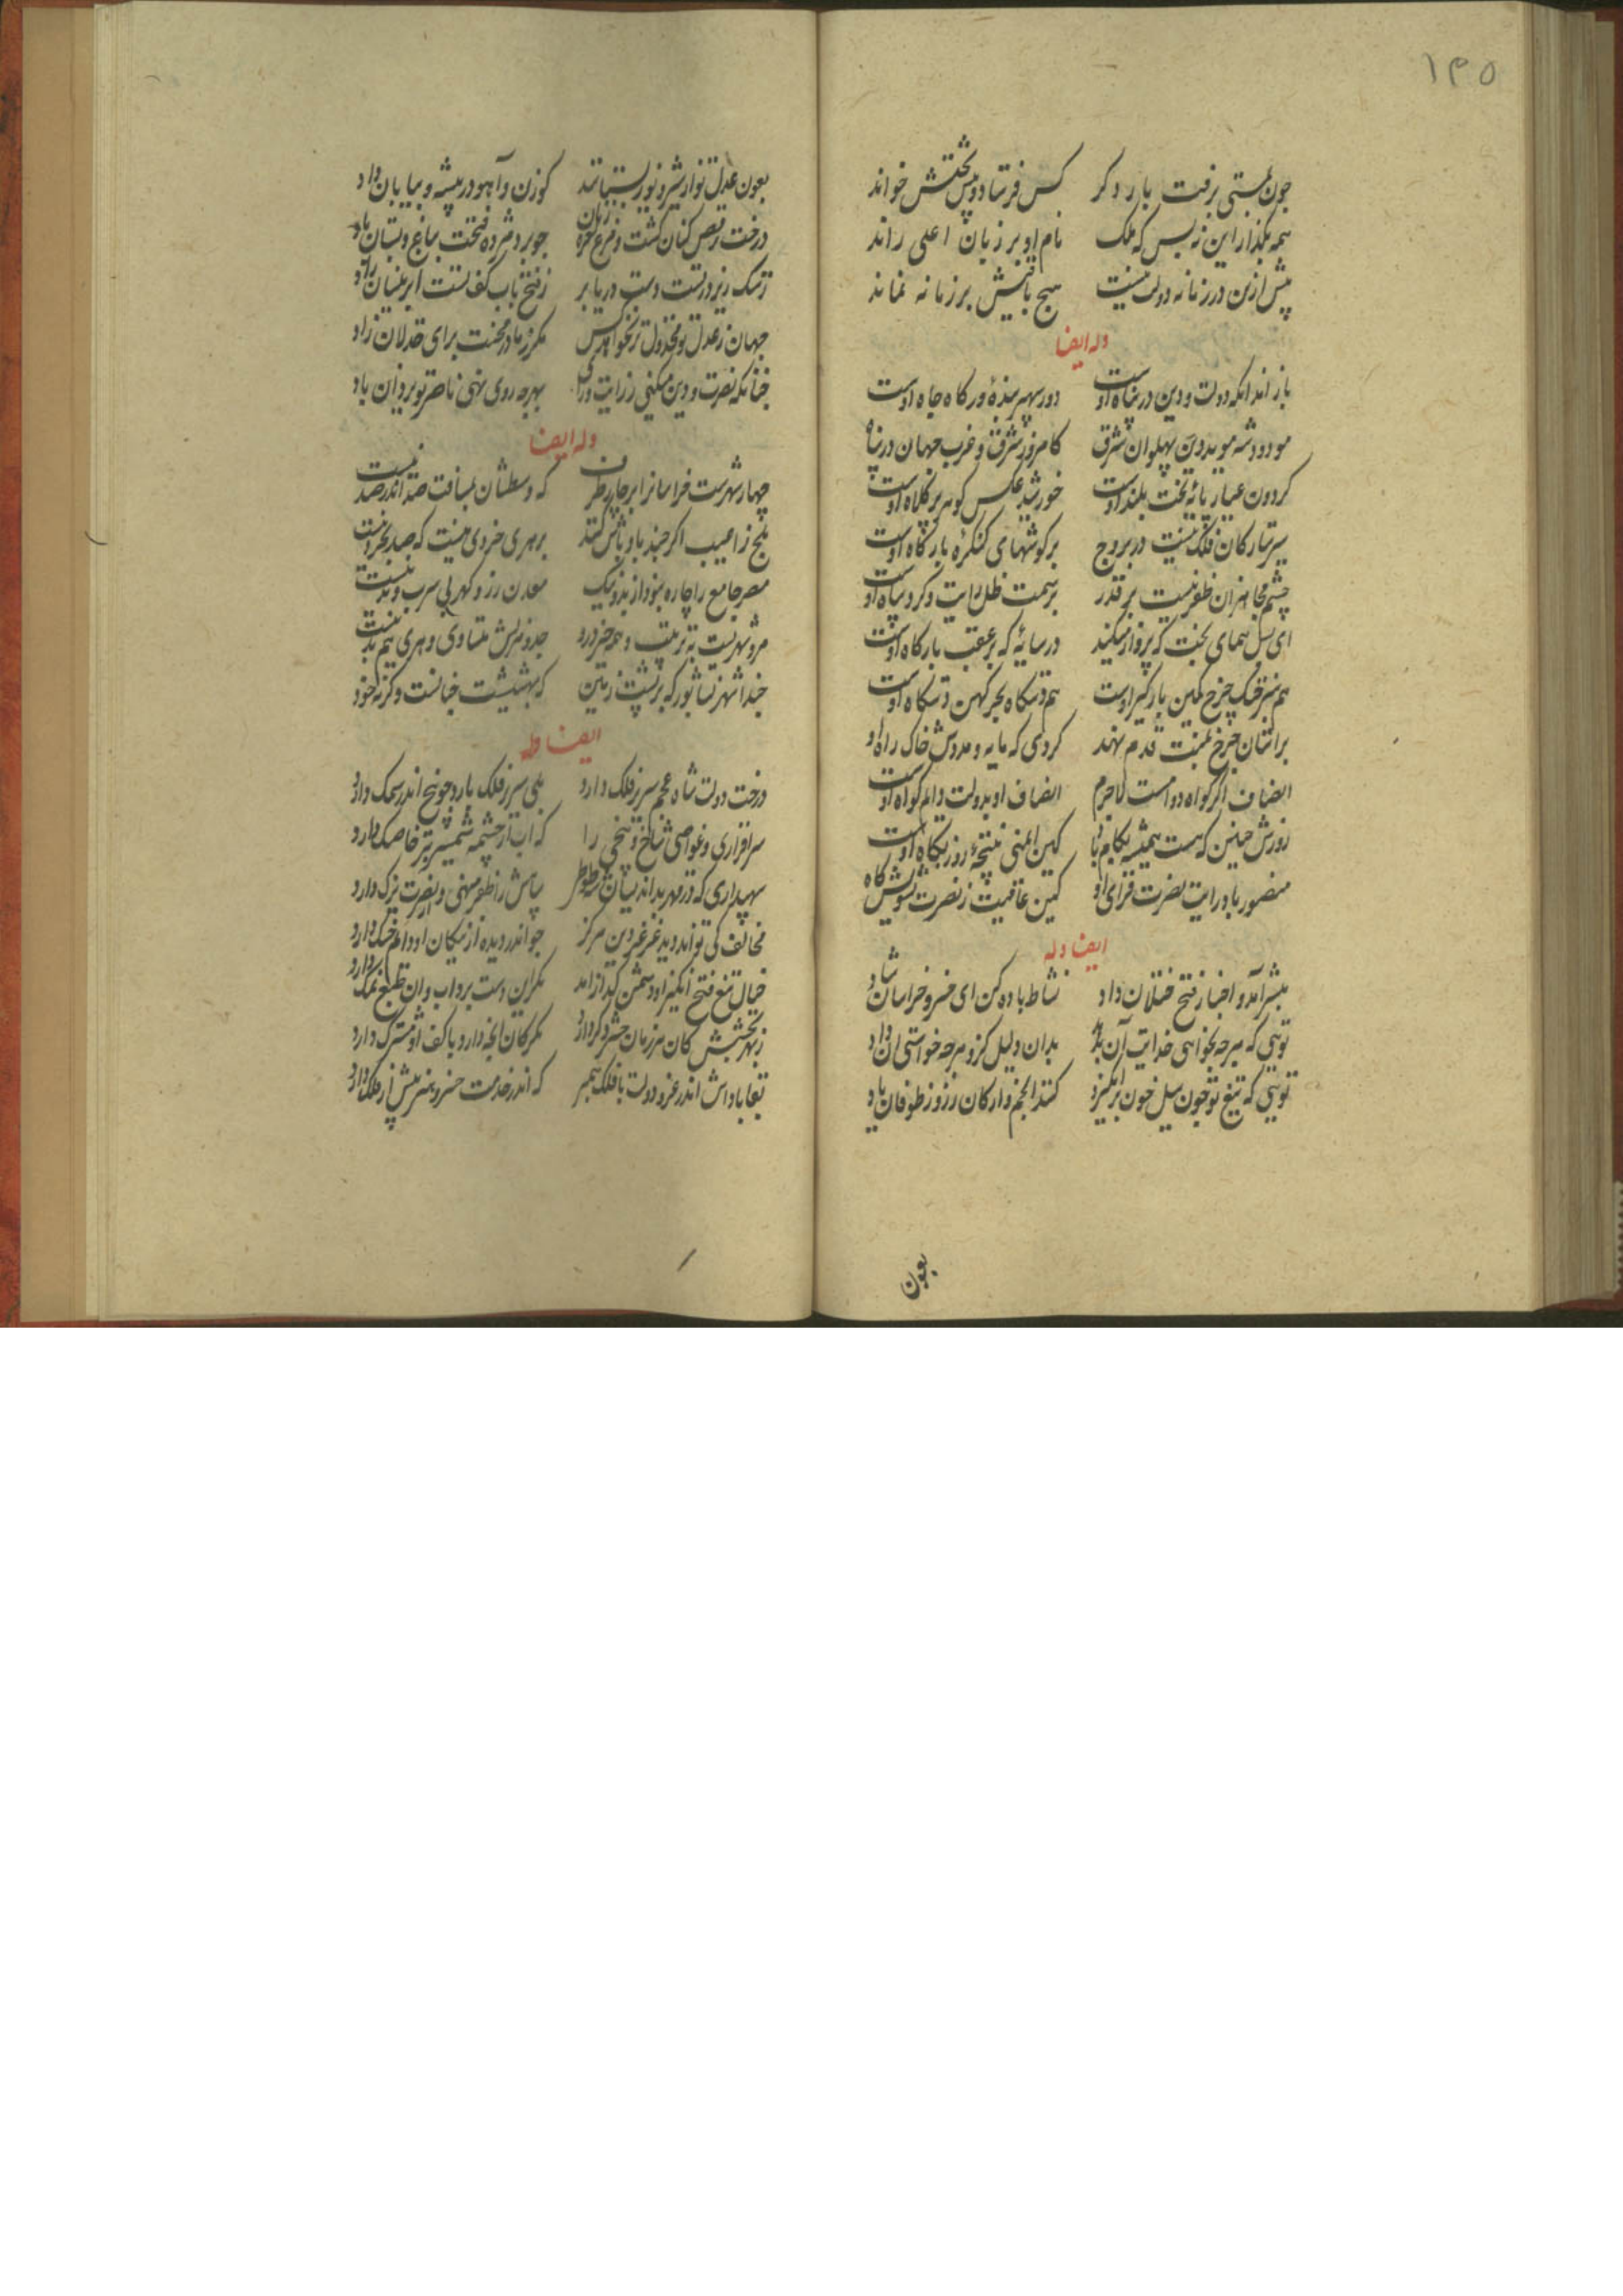 ۱۳۵
چون بمستی برفت بار دکر کس فرستاد و پیش تختش خواند
همه بکذار این نه بس که ملک نام او بر زبان اعلی راند
پیش ازین در زمانه دولت نیست هیچ باقیش بر زمانه نماند
وله ایضا
باز آمد آنکه دولت و دین در پناه اوست دور سپهر بندهٔ درکاه جاه اوست
مودود شه موید دین پهلوان شرق کامروز شرق و غرب جهان در پناه
کردون عیار پائه تخت بلند اوست خورشید عکس کوهر پر کلاه اوست
سیر ستارکان فلک نیست در بروج بر کوشهای کنکره بارکاه اوست
چشم مجاهزان ظفر نیست بر قدر بر سمت ظل رایت و کرد سپاه او
ای بس همای بخت که پرواز میکند در سایه که بر عقب بارکاه اوست
هم سبز خنک چرخ کمین بارکیر اوست هم دستکاه بحر کهن دستکاه اوست
بر آستان چرخ بمنت قدم نهد کردی که مایه و مددش خاک راه او
انصاف اکر کواه دوامست لاجرم انصاف او بدولت دایم کواه اوست
روزش چنین که هست همیشه بکام باد کین ایمنی نتیجهٔ روز بکاه اوست
منصور باد رایت نصرت فزای او کین عافیت ز نصرت
ایضا وله
مبشر آمد و اخبار فتح ختلان داد نشاط باده کن ای خسرو خراسان شاد
توئی که هرچه بخواهی خدایت آن بدهد بدان دلیل کزو هرچه خواستی آن داد
توئی که تیغ تو چون سیل خون برانکیزد کنند انجم و ارکان ز روز طوفان یاد
بعون
بعون عدل تو از شیر و یوز بستانند کوزن و آهو در بیشه و بیابان داد
درخت رقص کنان کشت و مرغ نعره زنان چو برد مژده فتحت بباغ و بستان باد
ز سنک زیر درست دست دریا بر ز فتح باب کف تست ابر نیسان راد
جهان ز عدل تو مخذول تر نخواهد کس مکر ز مادر محنت برای خذلان زاد
چنانکه نصرت دین میکنی ز رایت و رای بهرچه روی نهی ناصر تو یزدان باد
وله ایضا
چهار شهرست خراسانرا بر چار طرف که وسطشان بمسافت صد اندر صد نیست
بلخ را عیب اکر چند باوباش کنند بر هر بی خردی نیست که صد بخرد نیست
مصر جامع را چاره نبود از بد و نیک معدن زر و کهر بی سرب و بسد نیست
مرو شهریست به ترتیب همه چیز درو جد و هزلش متساوی و هری هم بد نیست
حبذا شهر نشابور که بر پشت زمین که بهشتست همانست و کرنه خود
ایضا وله
درخت دولت شاه عجم سر بر فلک دارد بلی سر بر فلک دارد چو بیخ اندر سمک دارد
سرافرازی و غواصی شاخ و بیخی را که آب از چشمه شمشیر تیز خاصبک دارد
سپهداری که سپاهش را ظفر منهی و نصرت یزک دارد
مخالف کی تواند دید عز دین هرکز چو اندر دیده از پیکان او دایم خسک دارد
خیال تیغ فتح انکیز او دشمن کداز آمد مکر آن دست برد آب و آن طبع نمک دارد
ز بهر بخشش کان هر زمان حشر دکر دارد مکر کان آنچه دارد با کف او مشترک دارد
بقا باداش اندر عز و دولت با فلک همبر که اندر خدمت خسرو هنر بیش از فلک دارد